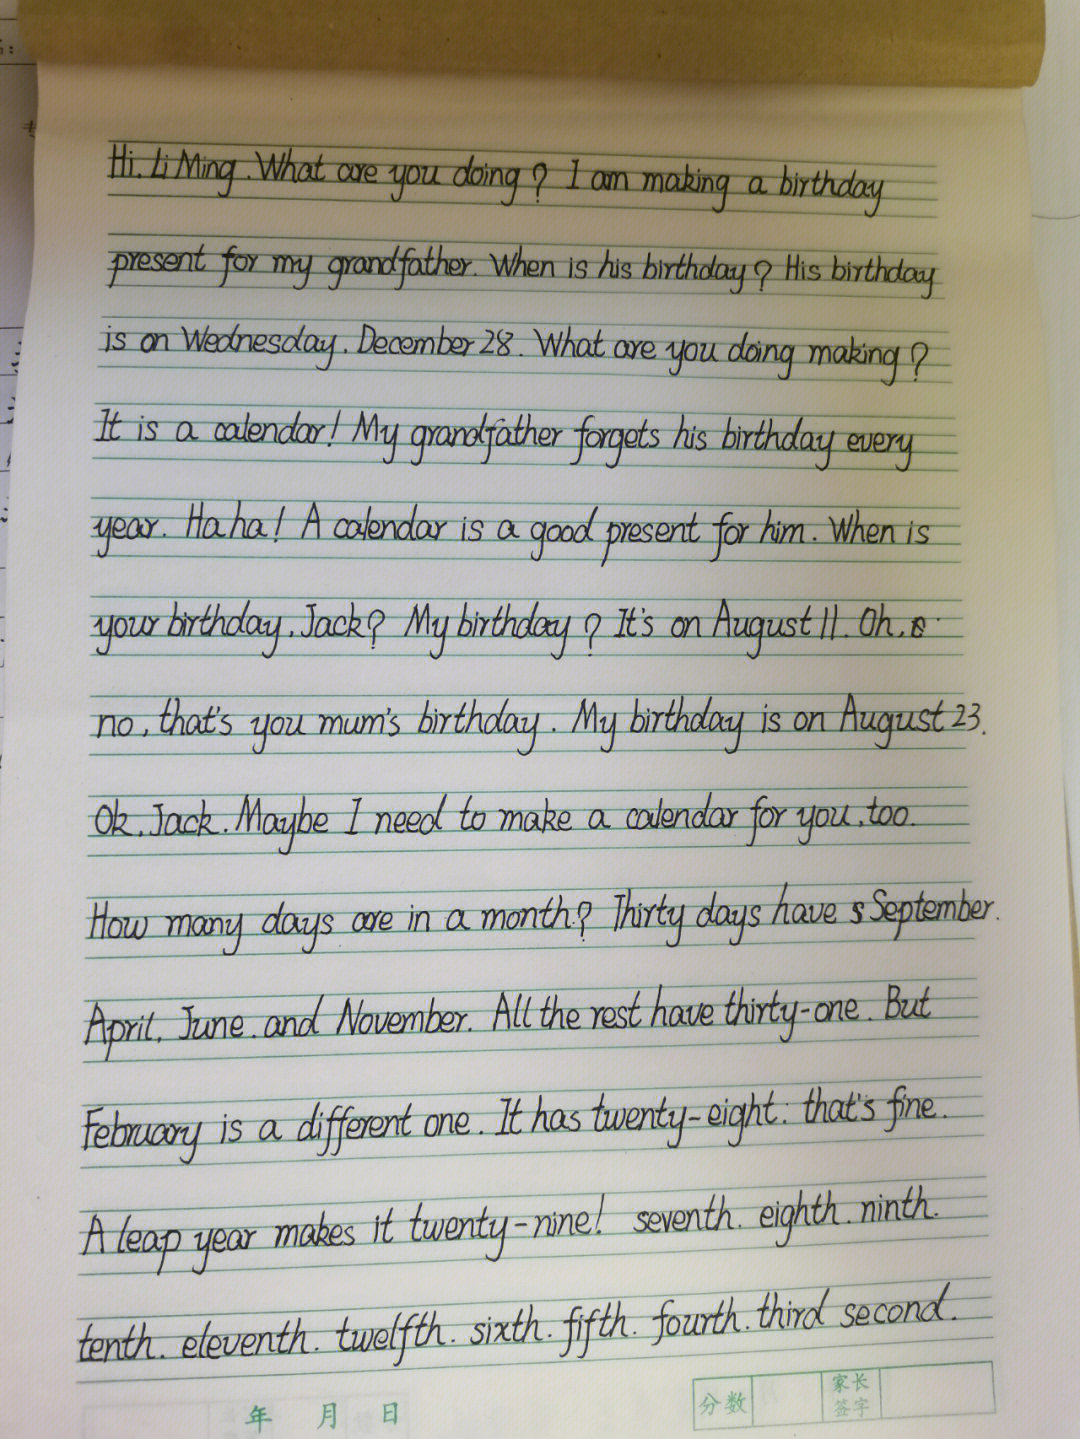 Hi. Li Ming. What are you doing? I am making a birthday
present for my grandfather. When is his birthday? His birthday
is on Wednesday. December 28. What are you doing making?
It is a calendar! My grandfather forgets his birthday every
year. Ha ha! A calendar is a good present for him. When is
your birthday. Jack? My birthday? It's on August 11. Oh.
no, that's you mum's birthday. My birthday is on August 23.
Ok. Jack. Maybe I need to make a calendar for you, too.
How many days are in a month? Thirty days have s September.
April. June. and November. All the rest have thirty-one. But
February is a different one. It has twenty-eight: that's fine.
A leap year makes it twenty-nine! seventh. eighth. ninth.
tenth. eleventh. twelfth. sixth. fifth. fourth. third second.
年 月 日
分数 家长签字